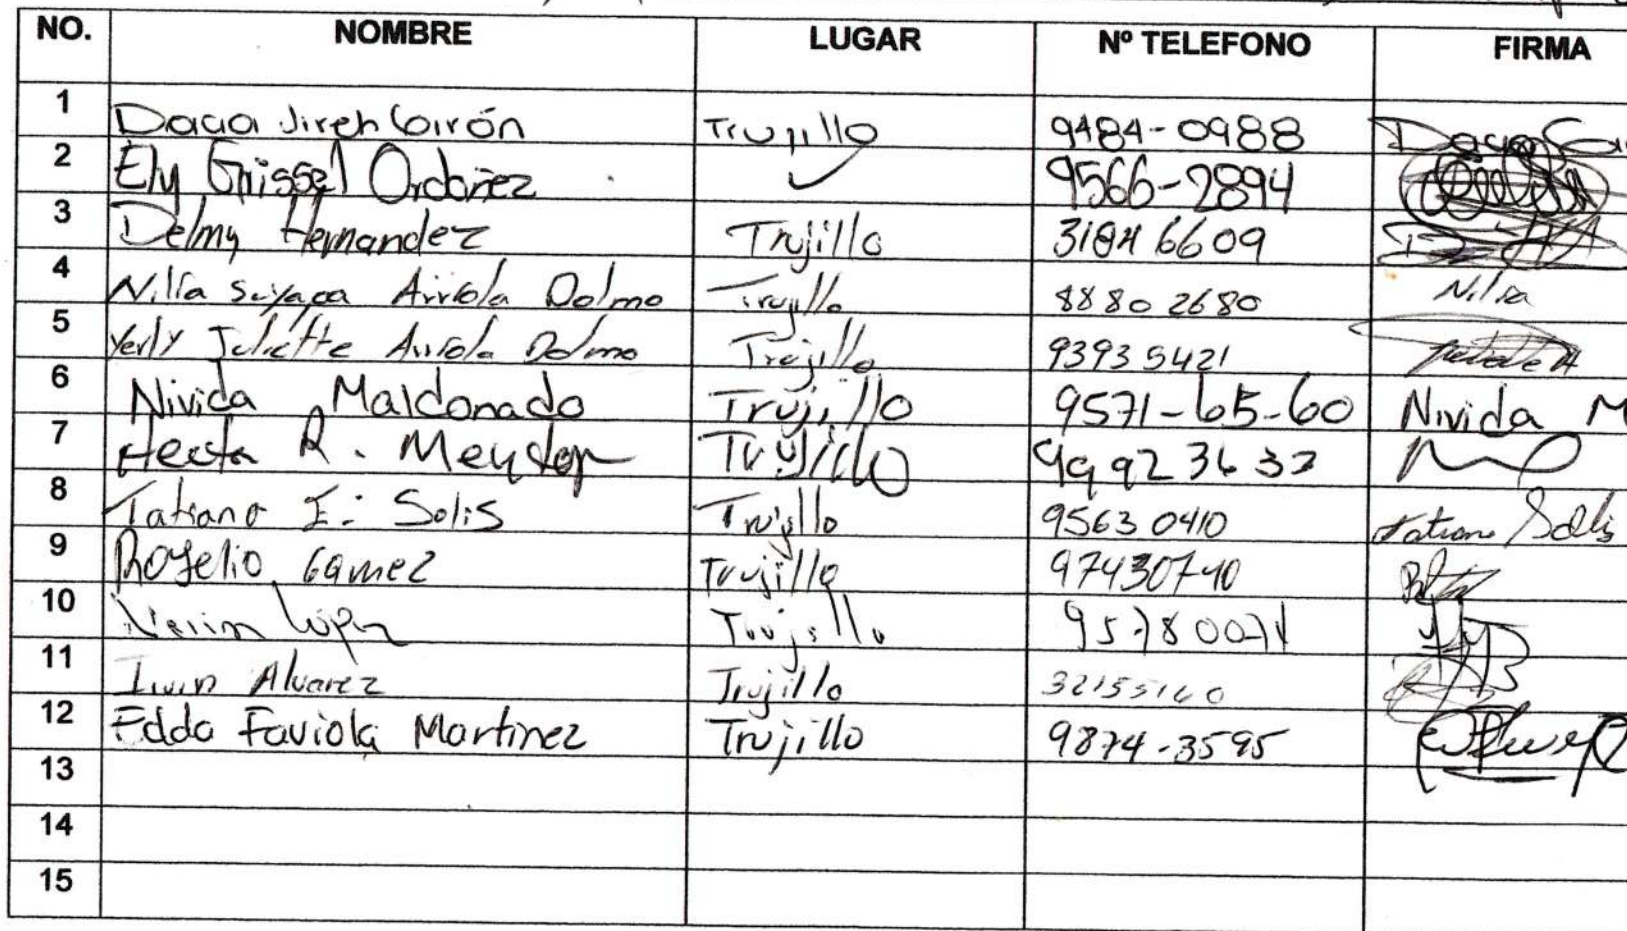 NO. NOMBRE LUGAR Nº TELEFONO FIRMA
1 Dacia Jireh Girón Trujillo 9484-0988 Dacia
2 Ely Grissel Ordoñez 9566-2894
3 Delmy Hernandez Trujillo 3184 6609
4 Nilia Suyapa Arriola Dolmo Trujillo 8880 2680 Nilia
5 Yerly Juliette Arriola Dolmo Trujillo 9393 5421
6 Nivida Maldonado Trujillo 9571-65-60 Nivida M
7 R. Trujillo 9992 3632
8 Tatiana E. Solis Trujillo 9563 0410 Tatiana Solis
9 Rogelio Gamez Trujillo 97430740
10 López Trujillo
11 Alvarez Trujillo 32155160
12 Edda Faviola Martinez Trujillo 9874-3595
13
14
15